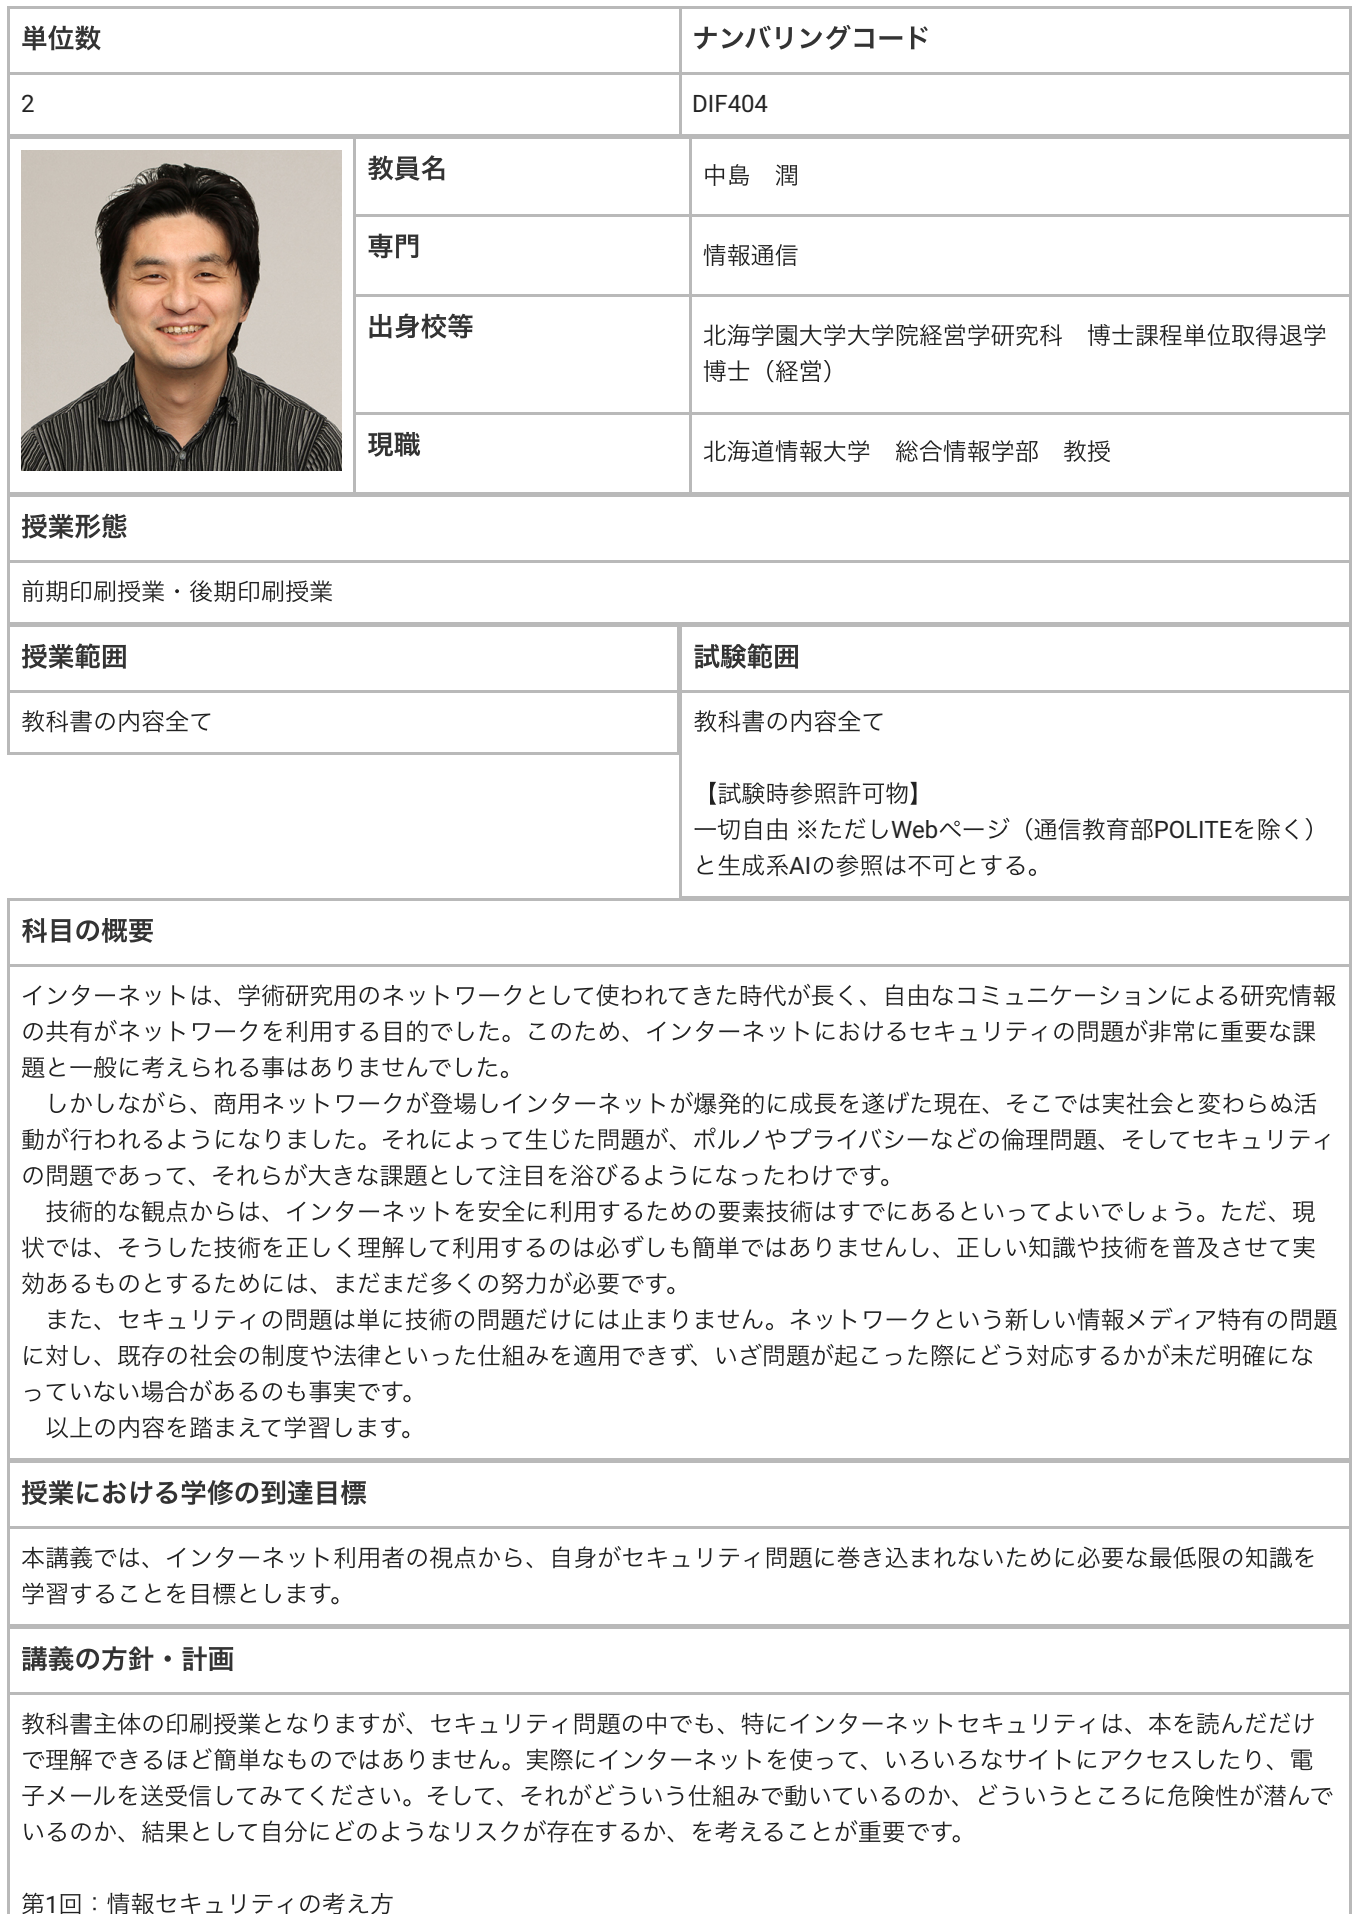 単位数
ナンバリングコード
2
DIF404
教員名
中島　潤
専門
情報通信
出身校等
北海学園大学大学院経営学研究科　博士課程単位取得退学
博士（経営）
現職
北海道情報大学　総合情報学部　教授
授業形態
前期印刷授業・後期印刷授業
授業範囲
教科書の内容全て
試験範囲
教科書の内容全て
【試験時参照許可物】
一切自由 ※ただしWebページ（通信教育部POLITEを除く）
と生成系AIの参照は不可とする。
科目の概要
インターネットは、学術研究用のネットワークとして使われてきた時代が長く、自由なコミュニケーションによる研究情報
の共有がネットワークを利用する目的でした。このため、インターネットにおけるセキュリティの問題が非常に重要な課
題と一般に考えられる事はありませんでした。
　しかしながら、商用ネットワークが登場しインターネットが爆発的に成長を遂げた現在、そこでは実社会と変わらぬ活
動が行われるようになりました。それによって生じた問題が、ポルノやプライバシーなどの倫理問題、そしてセキュリティ
の問題であって、それらが大きな課題として注目を浴びるようになったわけです。
　技術的な観点からは、インターネットを安全に利用するための要素技術はすでにあるといってよいでしょう。ただ、現
状では、そうした技術を正しく理解して利用するのは必ずしも簡単ではありませんし、正しい知識や技術を普及させて実
効あるものとするためには、まだまだ多くの努力が必要です。
　また、セキュリティの問題は単に技術の問題だけには止まりません。ネットワークという新しい情報メディア特有の問題
に対し、既存の社会の制度や法律といった仕組みを適用できず、いざ問題が起こった際にどう対応するかが未だ明確にな
っていない場合があるのも事実です。
　以上の内容を踏まえて学習します。
授業における学修の到達目標
本講義では、インターネット利用者の視点から、自身がセキュリティ問題に巻き込まれないために必要な最低限の知識を
学習することを目標とします。
講義の方針・計画
教科書主体の印刷授業となりますが、セキュリティ問題の中でも、特にインターネットセキュリティは、本を読んだだけ
で理解できるほど簡単なものではありません。実際にインターネットを使って、いろいろなサイトにアクセスしたり、電
子メールを送受信してみてください。そして、それがどういう仕組みで動いているのか、どういうところに危険性が潜んで
いるのか、結果として自分にどのようなリスクが存在するか、を考えることが重要です。
第1回：情報セキュリティの考え方